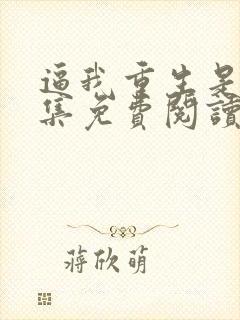 逼我重生是
集免費閱讀
蔣欣萌